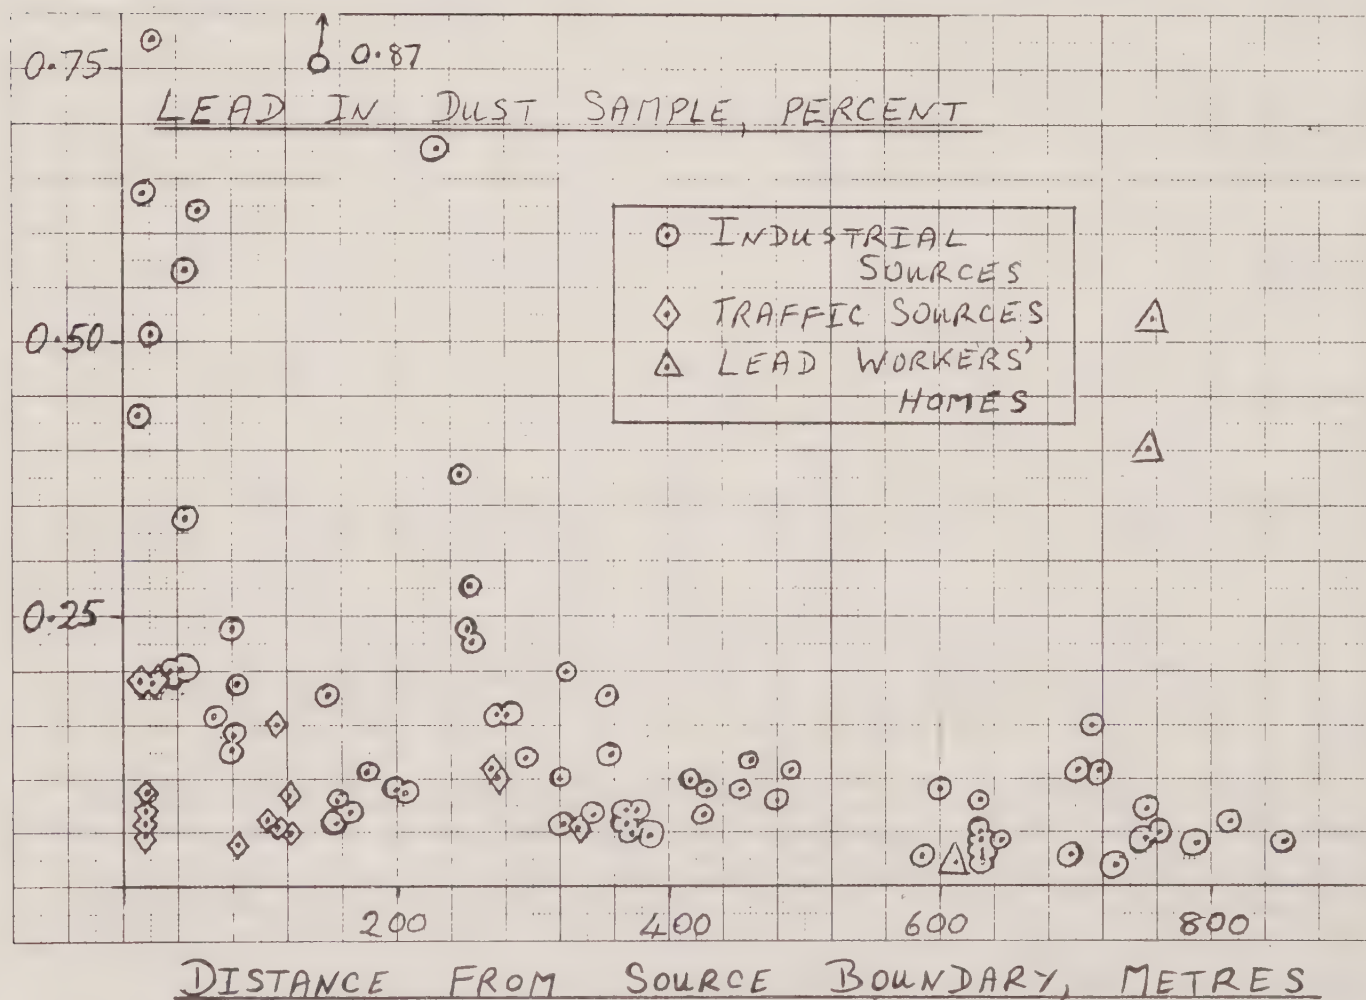 0.75
0.87
LEAD IN DUST SAMPLE, PERCENT
INDUSTRIAL
SOURCES
TRAFFIC SOURCES
LEAD WORKERS'
HOMES
0.50
0.25
200 400 600 800
DISTANCE FROM SOURCE BOUNDARY, METRES